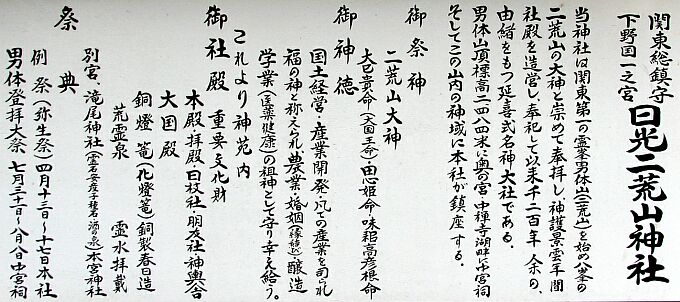 関東総鎮守
下野国一之宮
日光二荒山神社
当神社は関東第一の霊峯男体山(二荒山)を始め八峯の
二荒山の大神と崇めて奉拝し神護景雲年間
社殿を造営し奉祀して以来千二百年余の、
由緒をもつ延喜式名神大社である。
男体山頂標高二四八四米に奥の宮中禅寺湖畔に中宮祠
そしてこの山内の神域に本社が鎮座する。
御祭神
二荒山大神
大己貴命(大国主命)田心姫命・味耜高彦根命
御神徳
国土経営・産業開発・凡ての産業を司られ
福の神と称えられ農業・婚姻(縁結び)醸造
学業(医薬健康)の祖神として守り幸え給う。
御社殿 重要文化財
本殿・拝殿・日枝社・朋友社・神輿舎
これより神苑内
大国殿
銅燈篭(化燈篭)銅製春日造
荒霊泉 霊水拝戴
別宮 滝尾神社(霊石安産子種石・酒の泉)本宮神社
祭典
例祭(弥生祭)四月十三日〜十七日本社
男体登拝大祭 七月三十一日〜八月八日中宮祠